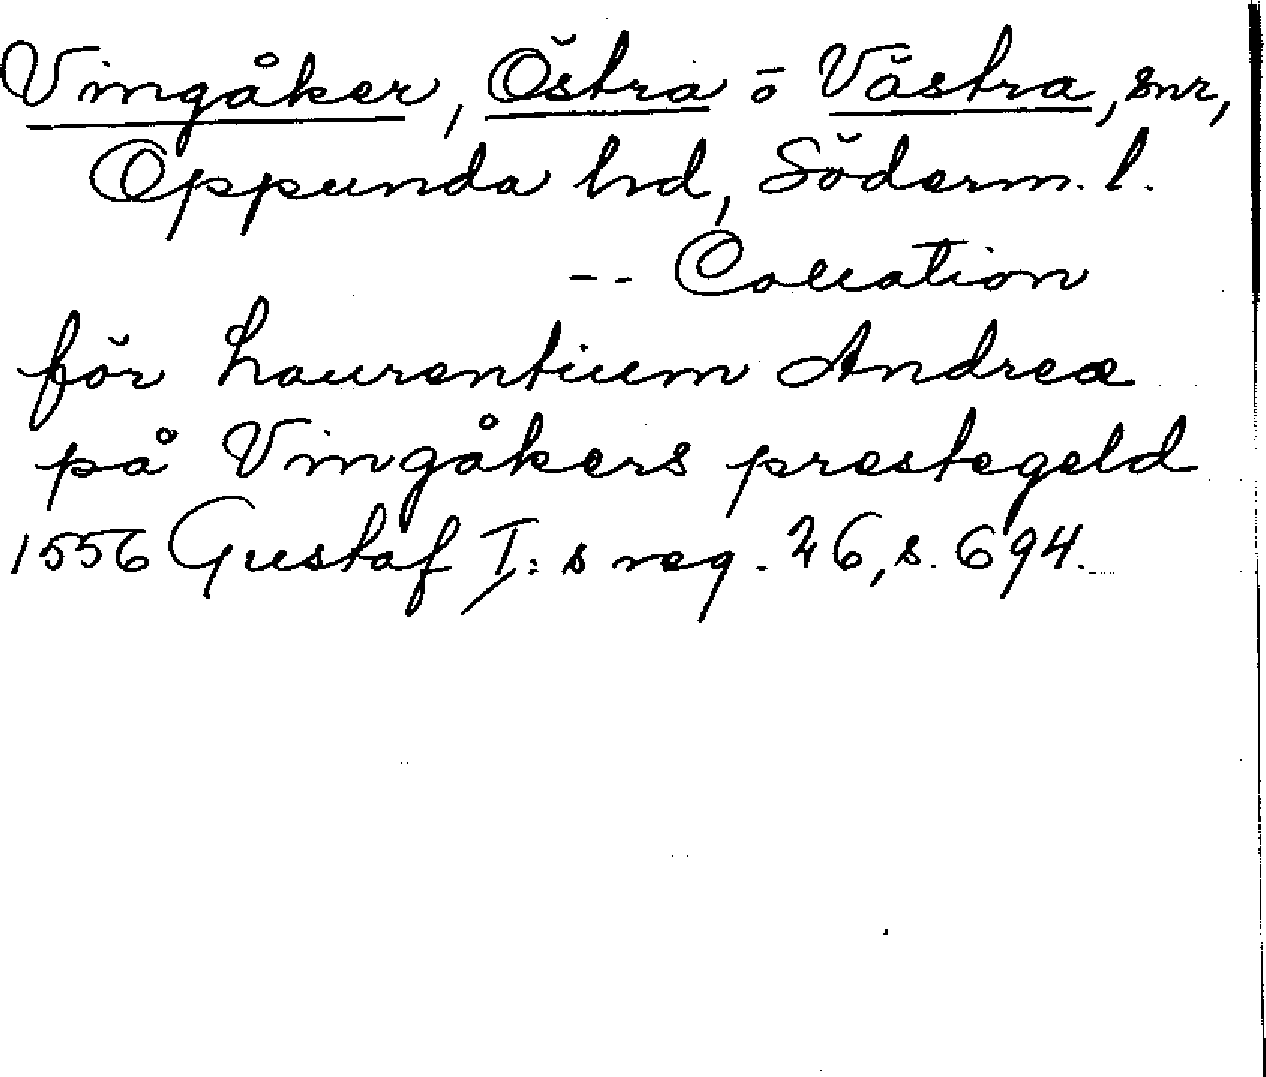 Vingåker, Östra o Västra, snr,
Oppunda hrd, Söderm. l.
-- Collation
för Laurentium Andreæ
på Vingåkers prestegeld
1556 Gustaf I:s reg. 26, s. 694.